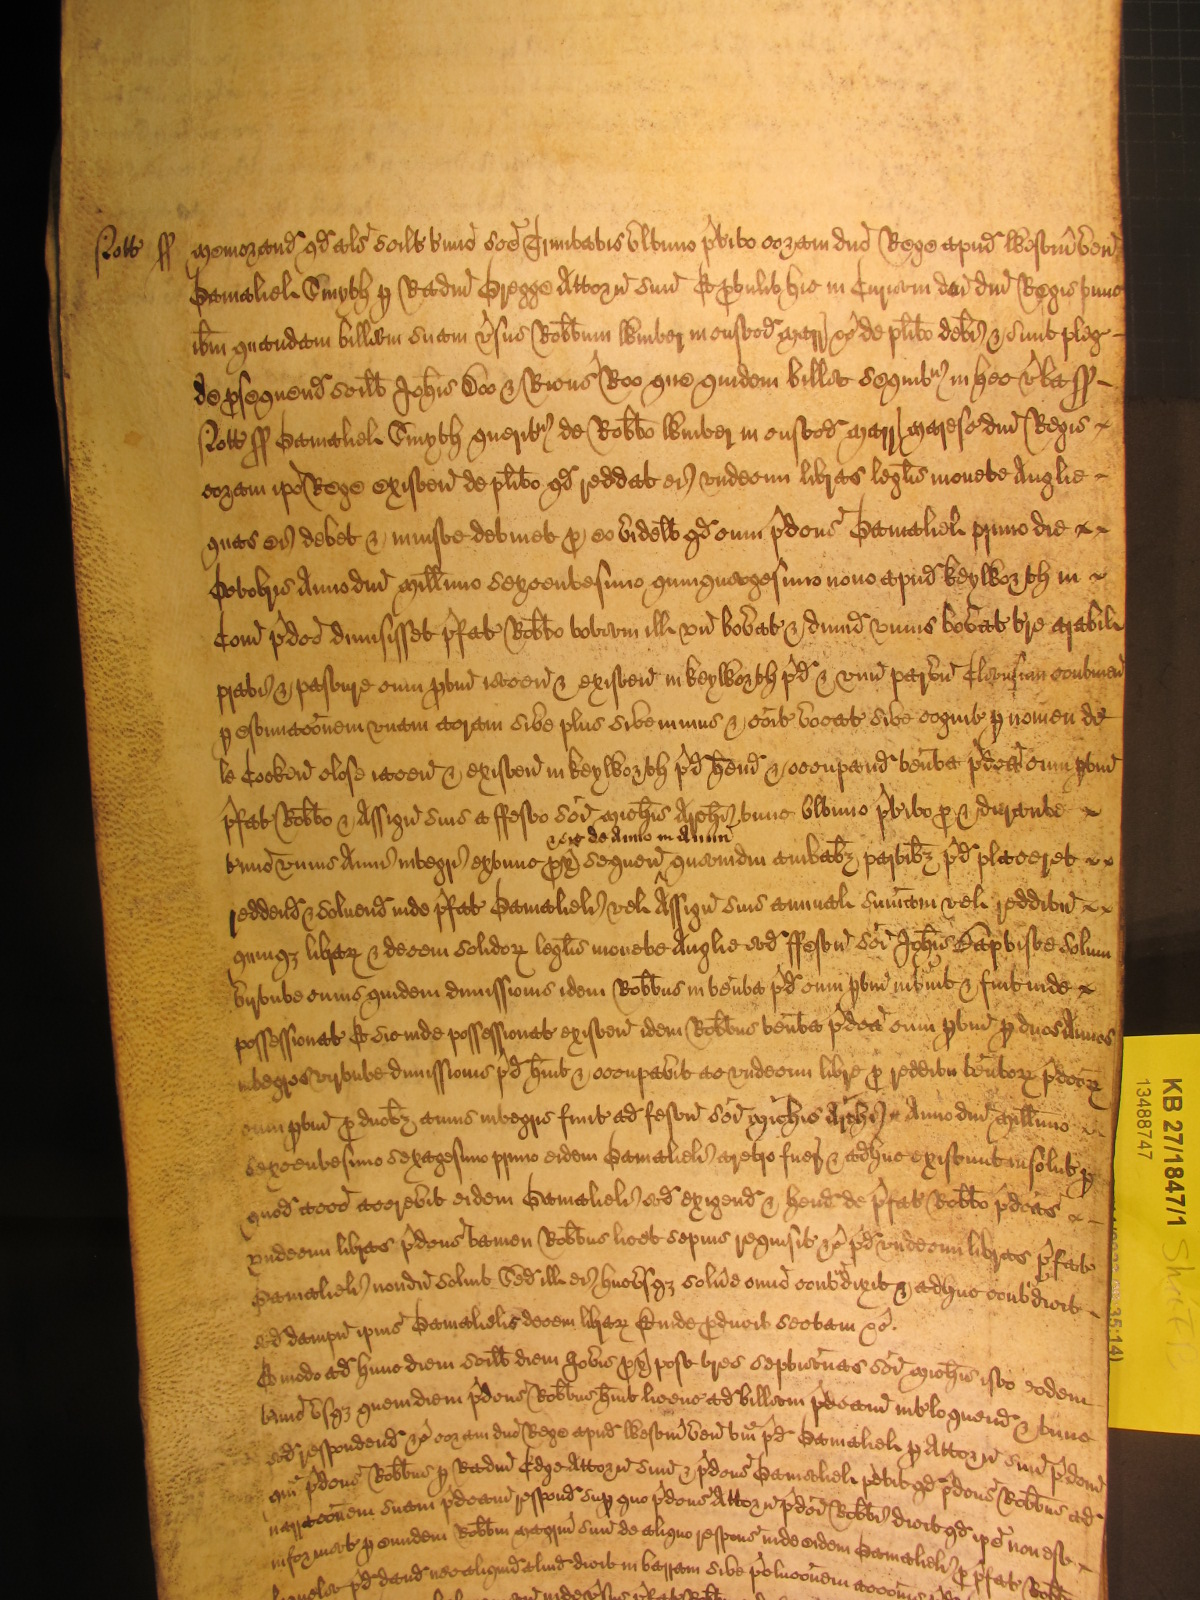 Nott ſſ Memorand qd als scilt tmio sce Trinitatis ultimo pterito coram dno Rege apud Westm ven
Gamaliel Smyth p Radm Gregge Attorn suu Et ptulit hic in Curia dci dni Regis tunc
ibm quandam billam suam vsus Robtum Winter in custod Marr &c de plito debi & sunt pleg
de psequend scilt Johis Doo & Ricus Roo que quidem billa sequitr in hec vba ſſ
Nott ſſ Gamaliel Smyth queritr de Robto Winter in custod Marr Maresc dni Regis
coram ipo Rege existen de plito qd reddat ei undecim libras leglis monete Anglie
quas ei debet & iniuste detinet p eo videlt qd cum pdcus Gamaliel primo die
Octobris Anno dni Millimo sexcentesimo quinquagesimo nono apud Keyworth in
Com pdco dimisisset pfat Robto totam ill un bovat & dimid unius bovat tre arabil
prati & pasture cum ptin iacen & existen in Keyworth pd & unu parvu Clausum continen
p estimacoem unam acram sive plus sive minus & coit vocat sive cognit p nomen de
le Cooken close iacen & existen in Keyworth pd hend & occupand tenta pdca cum ptin
pfat Robto & Assign suis a ffesto sci Michis Archi tunc ultimo pterito p & durante
& sic de Anno in Annu
tmio unius Anni integri extunc px sequen quamdiu ambabz partibz pd placeret
reddend & solvend inde pfat Gamalieli vel Assign suis annual sumam vel redditu
quinqz librar & decem solidor leglis monete Anglie ad ffestu sci Johis Baptiste solum
virtute cuius quidem dimissionis idem Robtus in tenta pd cum ptin intravit & fuit inde
possessionat Et sic inde possessionat existen idem Robtus tenta pdca cum ptin p duos Annos
integros virtute dimissionis pd huit & occupavit ac undecim libre p redditu tentor pdcor
cum ptin p duobz annis integris finit ad festu sci Michis Archi Anno dni Millimo
sexcentesimo sexagesimo primo eidem Gamalieli aretro fuer & adhuc existunt insolut p
quod accio accrevit eidem Gamalieli ad exigend & hend de pfat Robto pdcas
undecim libras pdcus tamen Robtus licet sepius requisit &c pd undecim libras pfat
Gamalieli nondu solvit Sed ill ei hucusqz solvere omio contradixit & adhuc contradicit
ad dampn ipius Gamalielis decem librar Et inde pducit sectam &c.
Et modo ad hunc diem scilt diem Jovis px post tres septimanas sci Michis isto eodem
tmio usqz quem diem pdcus Robtus huit licenc ad billam pdcam interloquend & tunc
ad respondend &c coram dno Rege apud Westm ven tam pd Gamaliel p Attorn suu pdcm
qm pdcus Robtus p Radm Edge Attorn suu & pdcus Gamaliel petit qd pdcus Robtus ad
narracoem suam pdcam respond sup quo pdcus Attorn pdci Robti dicit qd ipe non est
informat p eundem Robtm magrm suu de aliquo respons inde eidem Gamalieli p pfat Robto
pd dand nec aliquid aliud dicit in barram sive pclucoem accois
KB 27/1847/1
1348747
35:14)